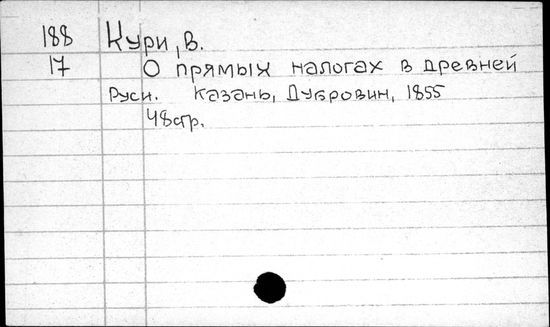 188 Кури, В.
17 О прямых налогах в древней
Руси. Казань, Дубровин, 1855
48стр.